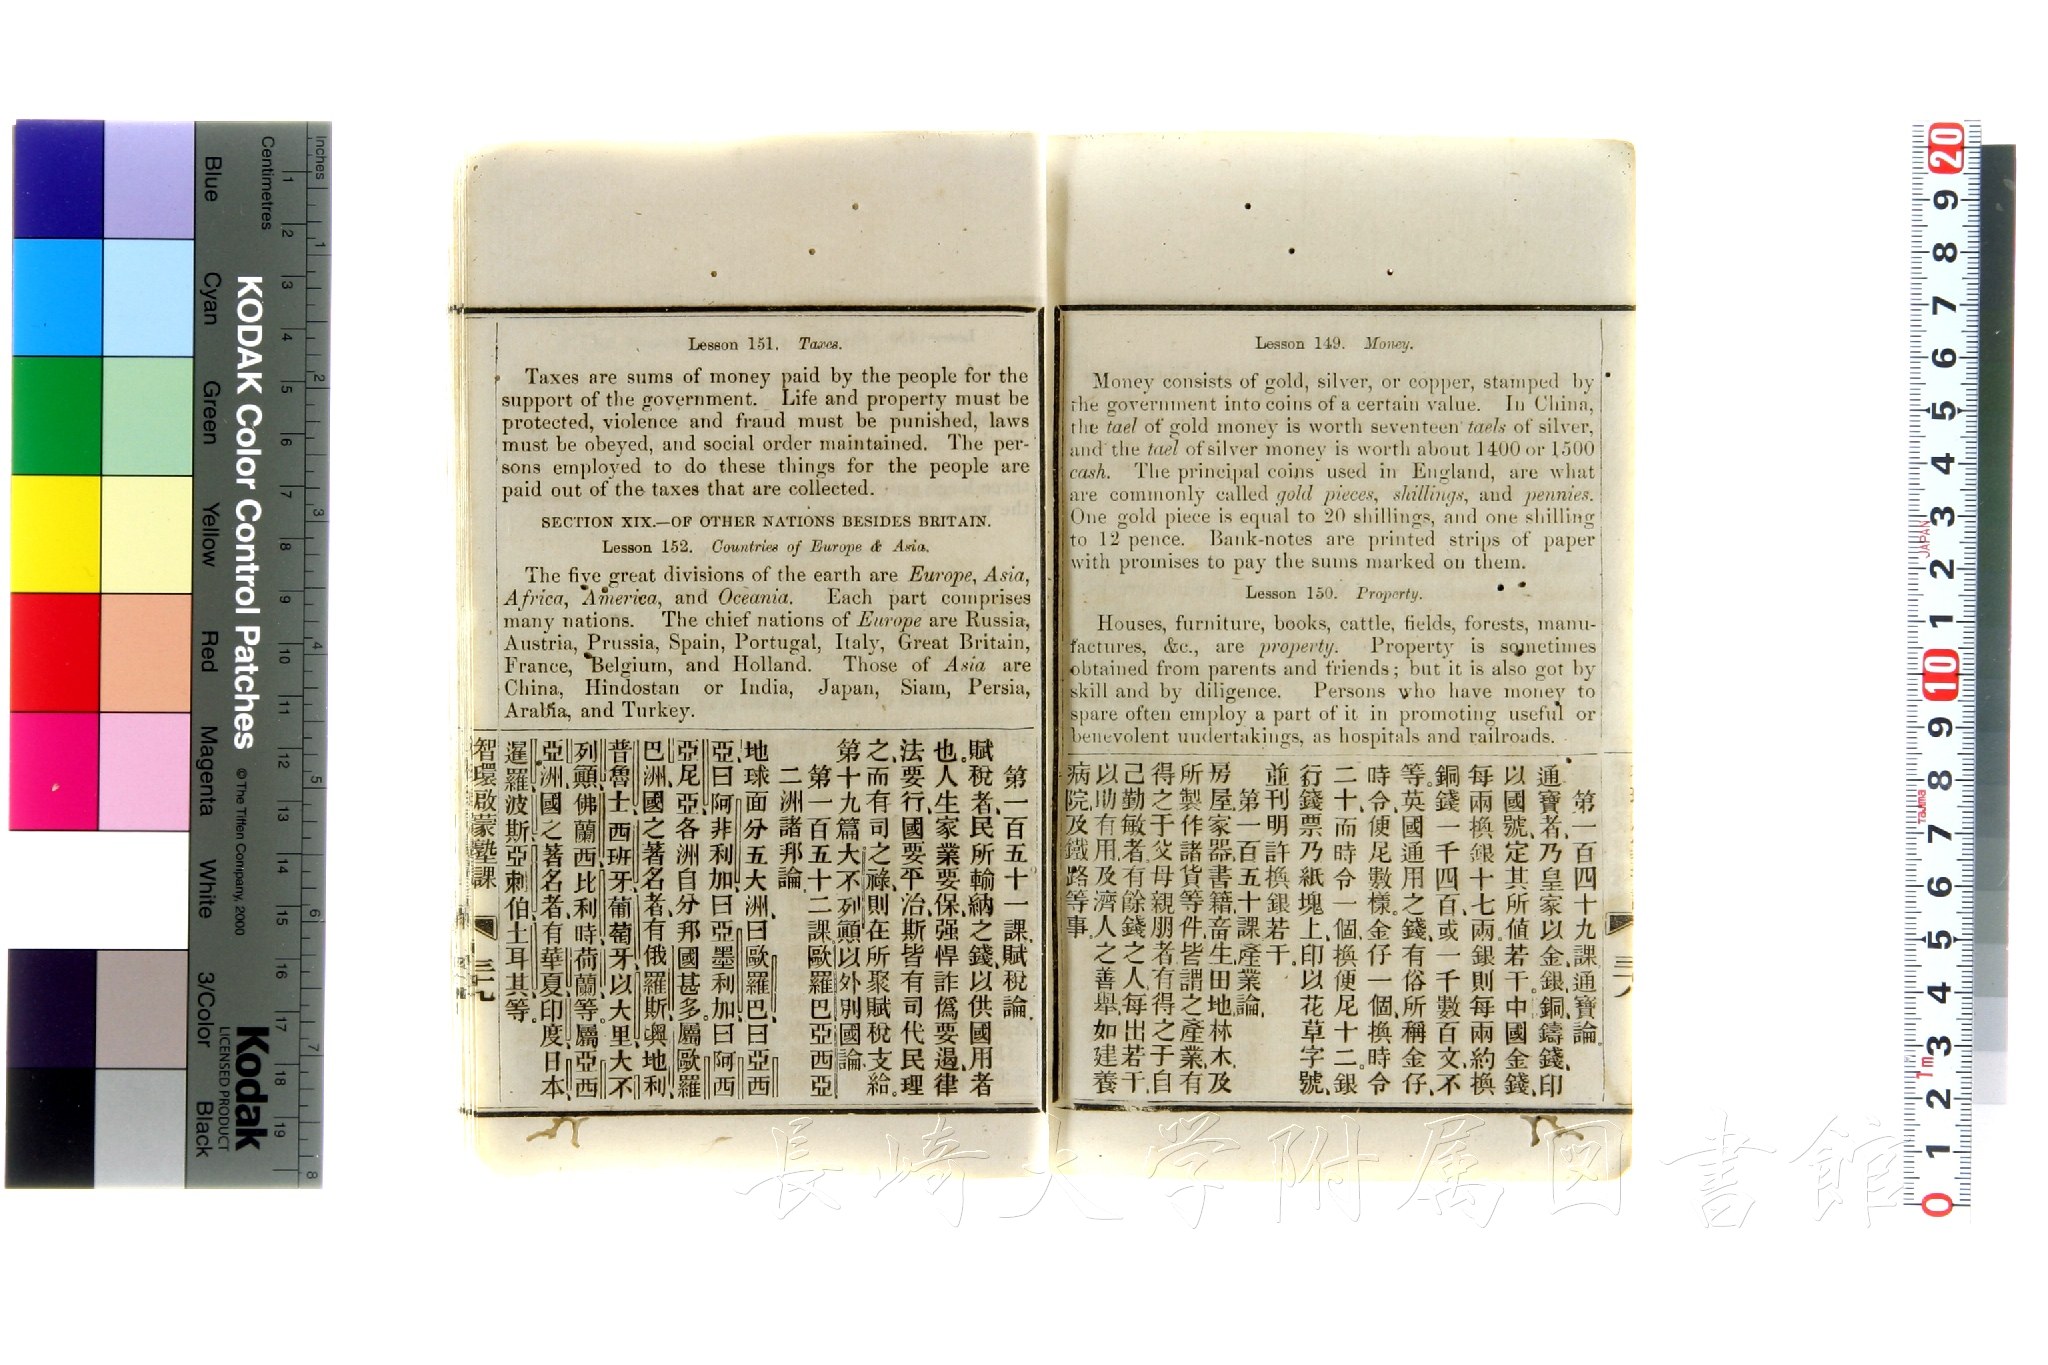 Lesson 149. Money.
Money consists of gold, silver, or copper, stamped by
the government into coins of a certain value. In China,
the tael of gold money is worth seventeen taels of silver,
and the tael of silver money is worth about 1400 or 1500
cash. The principal coins used in England, are what
are commonly called gold pieces, shillings, and pennies.
One gold piece is equal to 20 shillings, and one shilling
to 12 pence. Bank-notes are printed strips of paper
with promises to pay the sums marked on them.
Lesson 150. Property.
Houses, furniture, books, cattle, fields, forests, manu-
factures, &c., are property. Property is sometimes
obtained from parents and friends; but it is also got by
skill and by diligence. Persons who have money to
spare often employ a part of it in promoting useful or
benevolent undertakings, as hospitals and railroads.
第一百四十九課通寶論。
通寶者、乃皇家以金銀銅鑄錢、印
以國號、定其所値若干。中國金錢、
每兩換銀十七兩、銀則每兩約換
銅錢一千四百、或一千數百文不
等。英國通用之錢、有俗所稱金仔、
時令、便尼數樣。金仔一個、換時令
二十、而時令一個、換便尼十二。銀
行錢票、乃紙塊上、印以花草字號、
並刊明許換銀若干。
第一百五十課產業論。
房屋家器書籍畜生田地林木及
所製作諸貨等件、皆謂之產業。有
得之于父母親朋者、有得之于自
己勤敏者。有餘錢之人、每出若干、
以助有用、及濟人之善舉、如建養
病院、及鐵路等事。
Lesson 151. Taxes.
Taxes are sums of money paid by the people for the
support of the government. Life and property must be
protected, violence and fraud must be punished, laws
must be obeyed, and social order maintained. The per-
sons employed to do these things for the people are
paid out of the taxes that are collected.
SECTION XIX.—OF OTHER NATIONS BESIDES BRITAIN.
Lesson 152. Countries of Europe & Asia.
The five great divisions of the earth are Europe, Asia,
Africa, America, and Oceania. Each part comprises
many nations. The chief nations of Europe are Russia,
Austria, Prussia, Spain, Portugal, Italy, Great Britain,
France, Belgium, and Holland. Those of Asia are
China, Hindostan or India, Japan, Siam, Persia,
Arabia, and Turkey.
第一百五十一課賦稅論。
賦稅者、民所輸納之錢、以供國用者
也。人生家業要保、强悍詐僞要遏、律
法要行、國要平治、斯皆有司代民理
之、而有司之祿、則在所聚賦稅支給。
第十九篇大不列顚以外別國論。
第一百五十二課歐羅巴亞西亞
二洲諸邦論。
地球面分五大洲、曰歐羅巴、曰亞西
亞、曰阿非利加、曰亞墨利加、曰阿西
亞尼亞。各洲自分邦國甚多。屬歐羅
巴洲、國之著名者、有俄羅斯、奧地利、
普魯士、西班牙、葡萄牙、以大里、大不
列顚、佛蘭西、比利時、荷蘭等。屬亞西
亞洲、國之著名者、有華夏、印度、日本、
暹羅、波斯、亞剌伯、土耳其等。
智環啟蒙塾課
三十九
KODAK Color Control Patches
© The Tiffen Company, 2000
Kodak
LICENSED PRODUCT
Inches
Centimetres
1 2 3 4 5 6 7 8 9 10 11 12 13 14 15 16 17 18 19
1 2 3 4 5 6 7 8
Blue
Cyan
Green
Yellow
Red
Magenta
White
3/Color
Black
20 9 8 7 6 5 4 3 2 1 10 9 8 7 6 5 4 3 2 1 0
JAPAN
Tajima
1m
長崎大学附属図書館